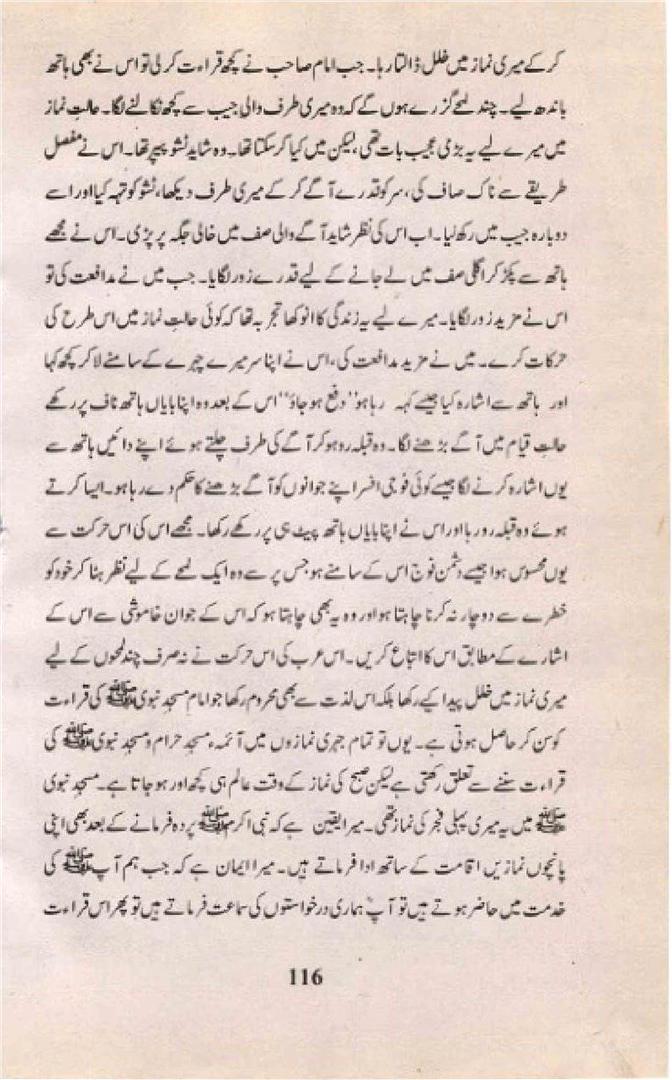 کر کے میری نماز میں خلل ڈالتا رہا۔ جب امام صاحب نے کچھ قراءت کر لی تو اس نے بھی ہاتھ
باندھ لیے۔ چند لمحے گزرے ہوں گے کہ وہ میری طرف والی جیب سے کچھ نکالنے لگا۔ حالتِ نماز
میں میرے لیے یہ بڑی عجیب بات تھی، لیکن میں کیا کر سکتا تھا۔ وہ شاید ٹشو پیپر تھا۔ اس نے مفصل
طریقے سے ناک صاف کی، سر کو قدرے آگے کر کے میری طرف دیکھا، ٹشو کو تہہ کیا اور اسے
دوبارہ جیب میں رکھ لیا۔ اب اس کی نظر شاید آگے والی صف میں خالی جگہ پر پڑی۔ اس نے مجھے
ہاتھ سے پکڑ کر اگلی صف میں لے جانے کے لیے قدرے زور لگایا۔ جب میں نے مدافعت کی تو
اس نے مزید زور لگایا۔ میرے لیے یہ زندگی کا انوکھا تجربہ تھا کہ کوئی حالتِ نماز میں اس طرح کی
حرکات کرے۔ میں نے مزید مدافعت کی، اس نے اپنا سر میرے چہرے کے سامنے لا کر کچھ کہا
اور ہاتھ سے اشارہ کیا جیسے کہہ رہا ہو ’’دفع ہو جاؤ‘‘ اس کے بعد وہ اپنا بایاں ہاتھ ناف پر رکھے
حالتِ قیام میں آگے بڑھنے لگا۔ وہ قبلہ رو ہو کر آگے کی طرف چلتے ہوئے اپنے دائیں ہاتھ سے
یوں اشارہ کرنے لگا جیسے کوئی فوجی افسر اپنے جوانوں کو آگے بڑھنے کا حکم دے رہا ہو۔ ایسا کرتے
ہوئے وہ قبلہ رو رہا اور اس نے اپنا بایاں ہاتھ پیٹ ہی پر رکھے رکھا۔ مجھے اس کی اس حرکت سے
یوں محسوس ہوا جیسے دشمن فوج اس کے سامنے ہو جس پر سے وہ ایک لمحے کے لیے نظر ہٹا کر خود کو
خطرے سے دوچار نہ کرنا چاہتا ہو اور وہ یہ بھی چاہتا ہو کہ اس کے جوان خاموشی سے اس کے
اشارے کے مطابق اس کا اتباع کریں۔ اس عرب کی اس حرکت نے نہ صرف چند لمحوں کے لیے
میری نماز میں خلل پیدا کیے رکھا بلکہ اس لذت سے بھی محروم رکھا جو امام مسجدِ نبوی ﷺ کی قراءت
کو سن کر حاصل ہوتی ہے۔ یوں تو تمام جہری نمازوں میں آئمہ مسجدِ حرام و مسجدِ نبوی ﷺ کی
قراءت سننے سے تعلق رکھتی ہے لیکن صبح کی نماز کے وقت عالم ہی کچھ اور ہو جاتا ہے۔ مسجدِ نبوی
ﷺ میں یہ میری پہلی فجر کی نماز تھی۔ میرا یقین ہے کہ نبی اکرم ﷺ پردہ فرمانے کے بعد بھی اپنی
پانچوں نمازیں اقامت کے ساتھ ادا فرماتے ہیں۔ میرا ایمان ہے کہ جب ہم آپ ﷺ کی
خدمت میں حاضر ہوتے ہیں تو آپؐ ہماری درخواستوں کی سماعت فرماتے ہیں تو پھر اس قراءت
116